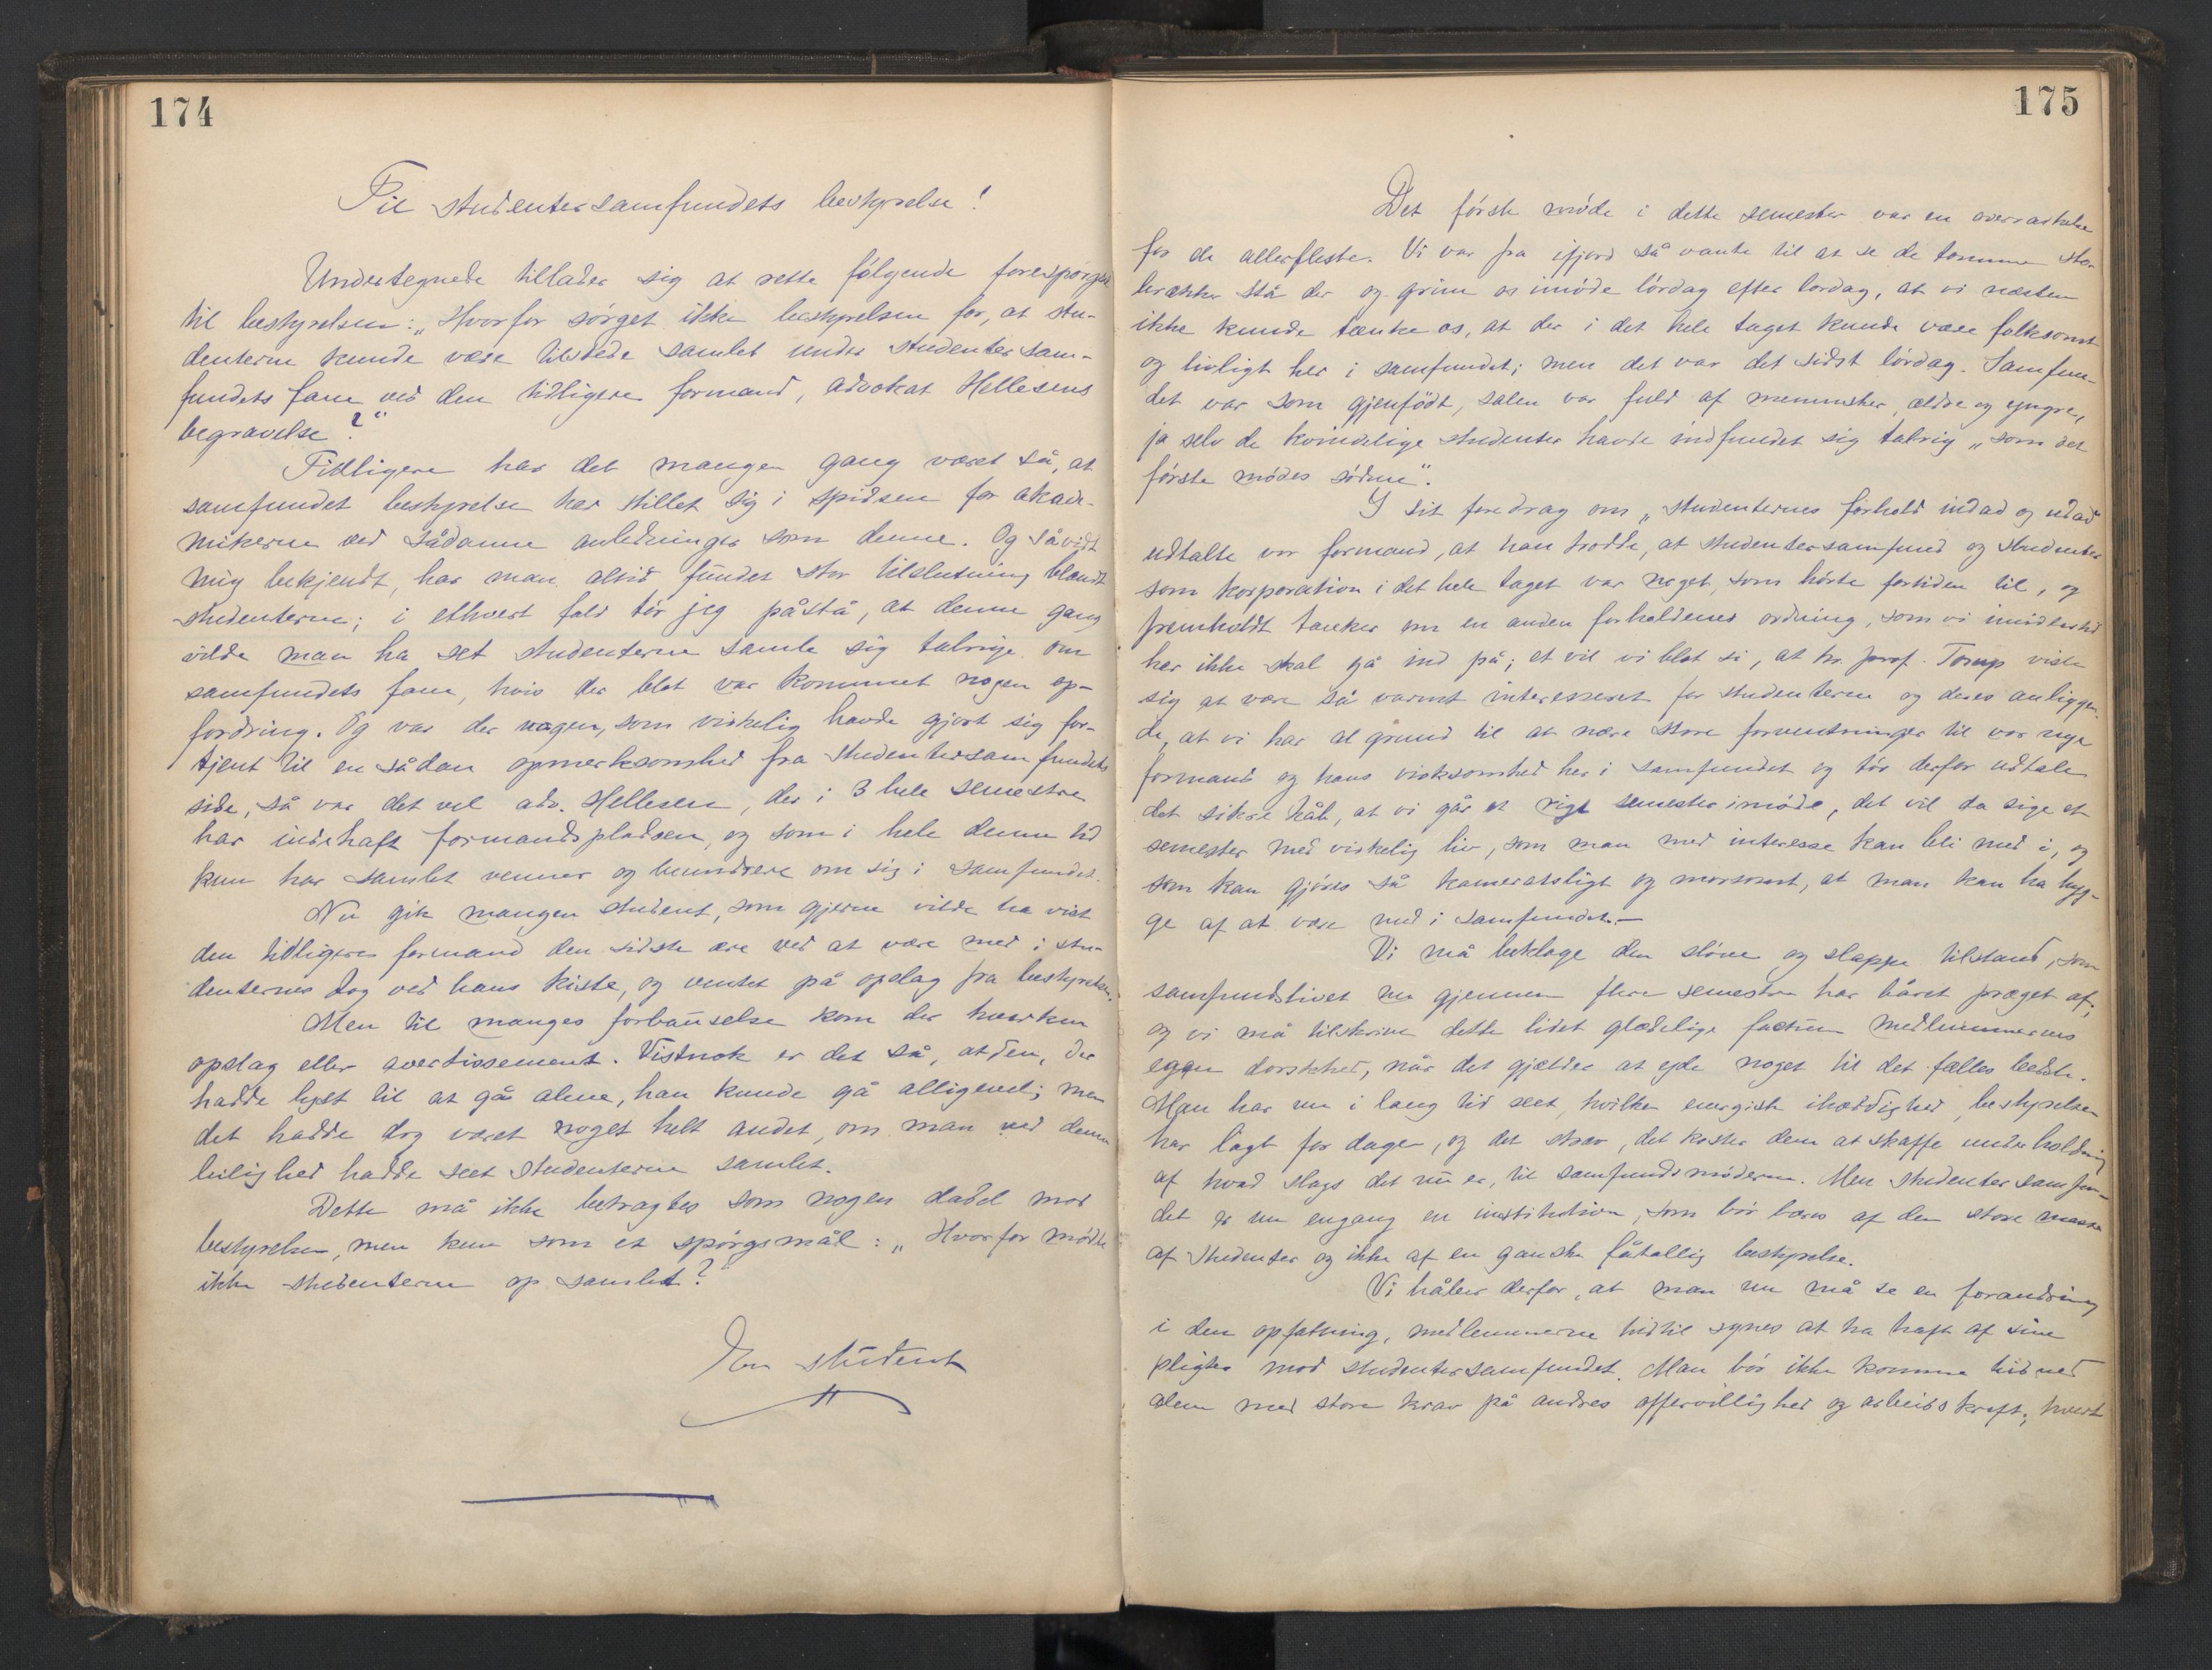 174
Til studentersamfundets bestyrelse!
Undertegnede tillader sig at rette følgende forespørgsel
til bestyrelsen: „Hvorfor sørget ikke bestyrelsen for, at stu-
denterne kunde være tilstede samlet under studentersam-
fundets fane ved den tidligere formand, advokat Hellesens
begravelse?“
Tidligere har det mangen gang været så, at
samfundet bestyrelse har stillet sig i spidsen for akade-
mikerne ved sådanne anledninger som denne. Og såvidt
mig bekjendt, har man altid fundet stor tilslutning blandt
studenterne; i ethvert fald tør jeg påstå, at denne gang
vilde man ha set studenterne samle sig talrige om
samfundets fane, hvis der blot var kommet nogen op-
fordring. Og var der nogen, som virkelig havde gjort sig for-
tjent til en sådan opmerksomhed fra studentersamfundets
side, så var det vel adv. Hellesen, der i 3 hele semestre
har indehaft formandspladsen, og som i hele denne tid
kun har samlet venner og beundrere om sig i samfundet.
Nu gik mangen student, som gjerne vilde ha vist
den tidligere formand den sidste ære ved at være med i stu-
denternes tog ved hans kiste, og ventet på opslag fra bestyrelsen.
Men til manges forbauselse kom der hverken
opslag eller avertissement. Vistnok er det så, at den, der
hadde lyst til at gå alene, han kunde gå alligevel; men
det hadde dog været noget helt andet, om man ved denne
leilighed hadde seet studenterne samlet.
Dette må ikke betragtes som nogen dadel mod
bestyrelsen, men kun som et spørgsmål: „Hvorfor mødte
ikke studenterne op samlet?“
En student
175
Det første møde i dette semester var en overraskelse
for de allerfleste. Vi var fra ifjord så vante til at se de tomme stol
berækker stå der og grine os imøde lørdag efter lørdag, at vi næsten
ikke kunde tænke os, at der i det hele taget kunde være folksomt
og livligt her i samfundet; men det var det sidst lørdag. Samfun-
det var som gjenfødt, salen var fuld af mennesker, ældre og yngre,
ja selv de kvindelige studenter havde indfundet sig talrig „som det
første mødes sødme“.
I sit foredrag om „studenternes forhold indad og udad“
udtalte vor formand, at han trodde, at studentersamfund og studenter
som korporation i det hele taget var noget, som hørte fortiden til, og
fremholdt tanker om en anden forholdenes ordning, som vi imidlertid
her ikke skal gå ind på; et vil vi blot si, at hr. prof. Torup viste
sig at være så varmt interesseret for studenterne og deres anliggen-
de, at vi har al grund til at nære store forventninger til vor nye
formand og hans virksomhed her i samfundet og tør derfor udtale
det sikre håb, at vi går et rigt semester imøde, det vil da sige et
semester med virkelig liv, som man med interesse kan bli med i, og
som kan gjøres så kameratsligt og morsomt, at man kan ha hyg-
ge af at være med i samfundet. —
Vi må beklage den sløve og slappe tilstand, som
samfundslivet nu gjennem flere semestre har båret præget af;
og vi må tilskrive dette lidet glædelige factum medlemmernes
egen dorskhed, når det gjælder at yde noget til det fælles bedste.
Man har nu i lang tid seet, hvilken energisk ihærdighed bestyrelsen
har lagt for dagen, og det strev, det koster dem at skaffe underholdning
af hvad slags det nu er, til samfundsmøderne. Men studentersamfun-
det er nu engang en institution, som bør bæres af den store masse
af studenter og ikke af en ganske fåtallig bestyrelse.
Vi håber derfor, at man nu må se en forandring
i den opfatning, medlemmerne hidtil synes at ha haft af sine
pligter mod studentersamfundet. Man bør ikke komme hid ned
alene med store krav på andres offervillighed og arbeidskraft; hvert